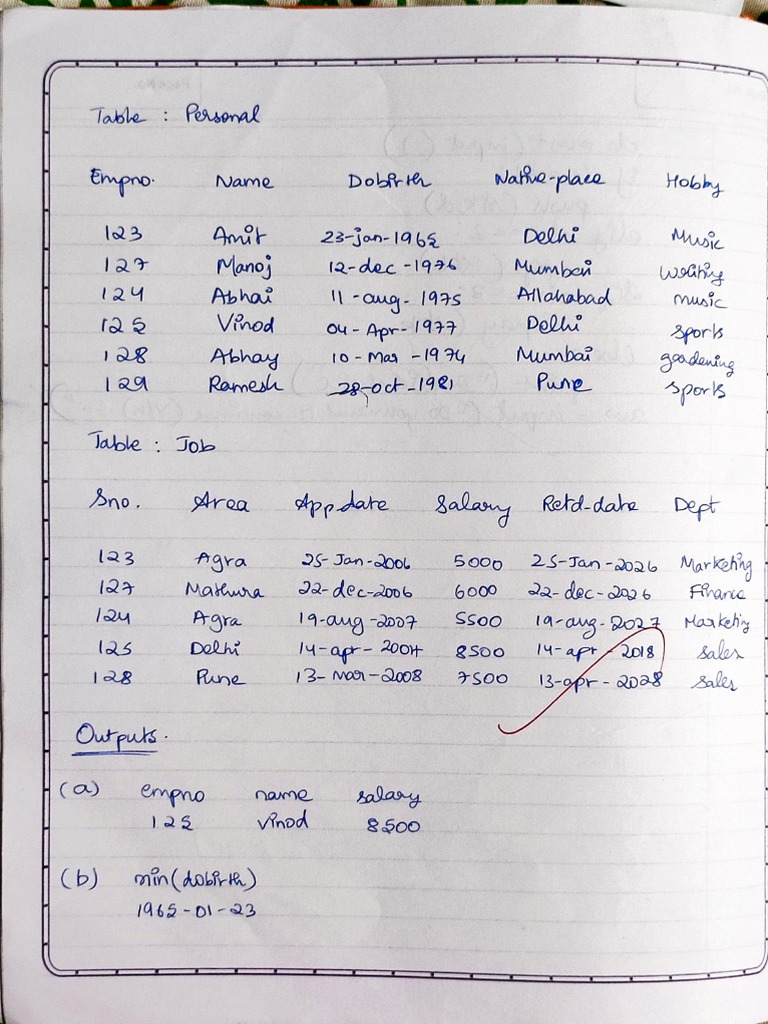 Table : Personal
Empno. Name Dobirth Native-place Hobby
123 Amit 23-jan-1965 Delhi Music
127 Manoj 12-dec-1976 Mumbai writing
124 Abhai 11-aug-1975 Allahabad music
125 Vinod 04-Apr-1977 Delhi sports
128 Abhay 10-Mar-1974 Mumbai gardening
129 Ramesh 28-oct-1981 Pune sports
Table : Job
Sno. Area App.date Salary Retd-date Dept
123 Agra 25-Jan-2006 5000 25-Jan-2026 Marketing
127 Mathura 22-dec-2006 6000 22-dec-2026 Finance
124 Agra 19-aug-2007 5500 19-aug-2027 Marketing
125 Delhi 14-apr-2004 8500 14-apr-2018 sales
128 Pune 13-Mar-2008 7500 13-apr-2028 sales
Outputs.
(a) empno name salary
125 vinod 8500
(b) min(dobirth)
1965-01-23